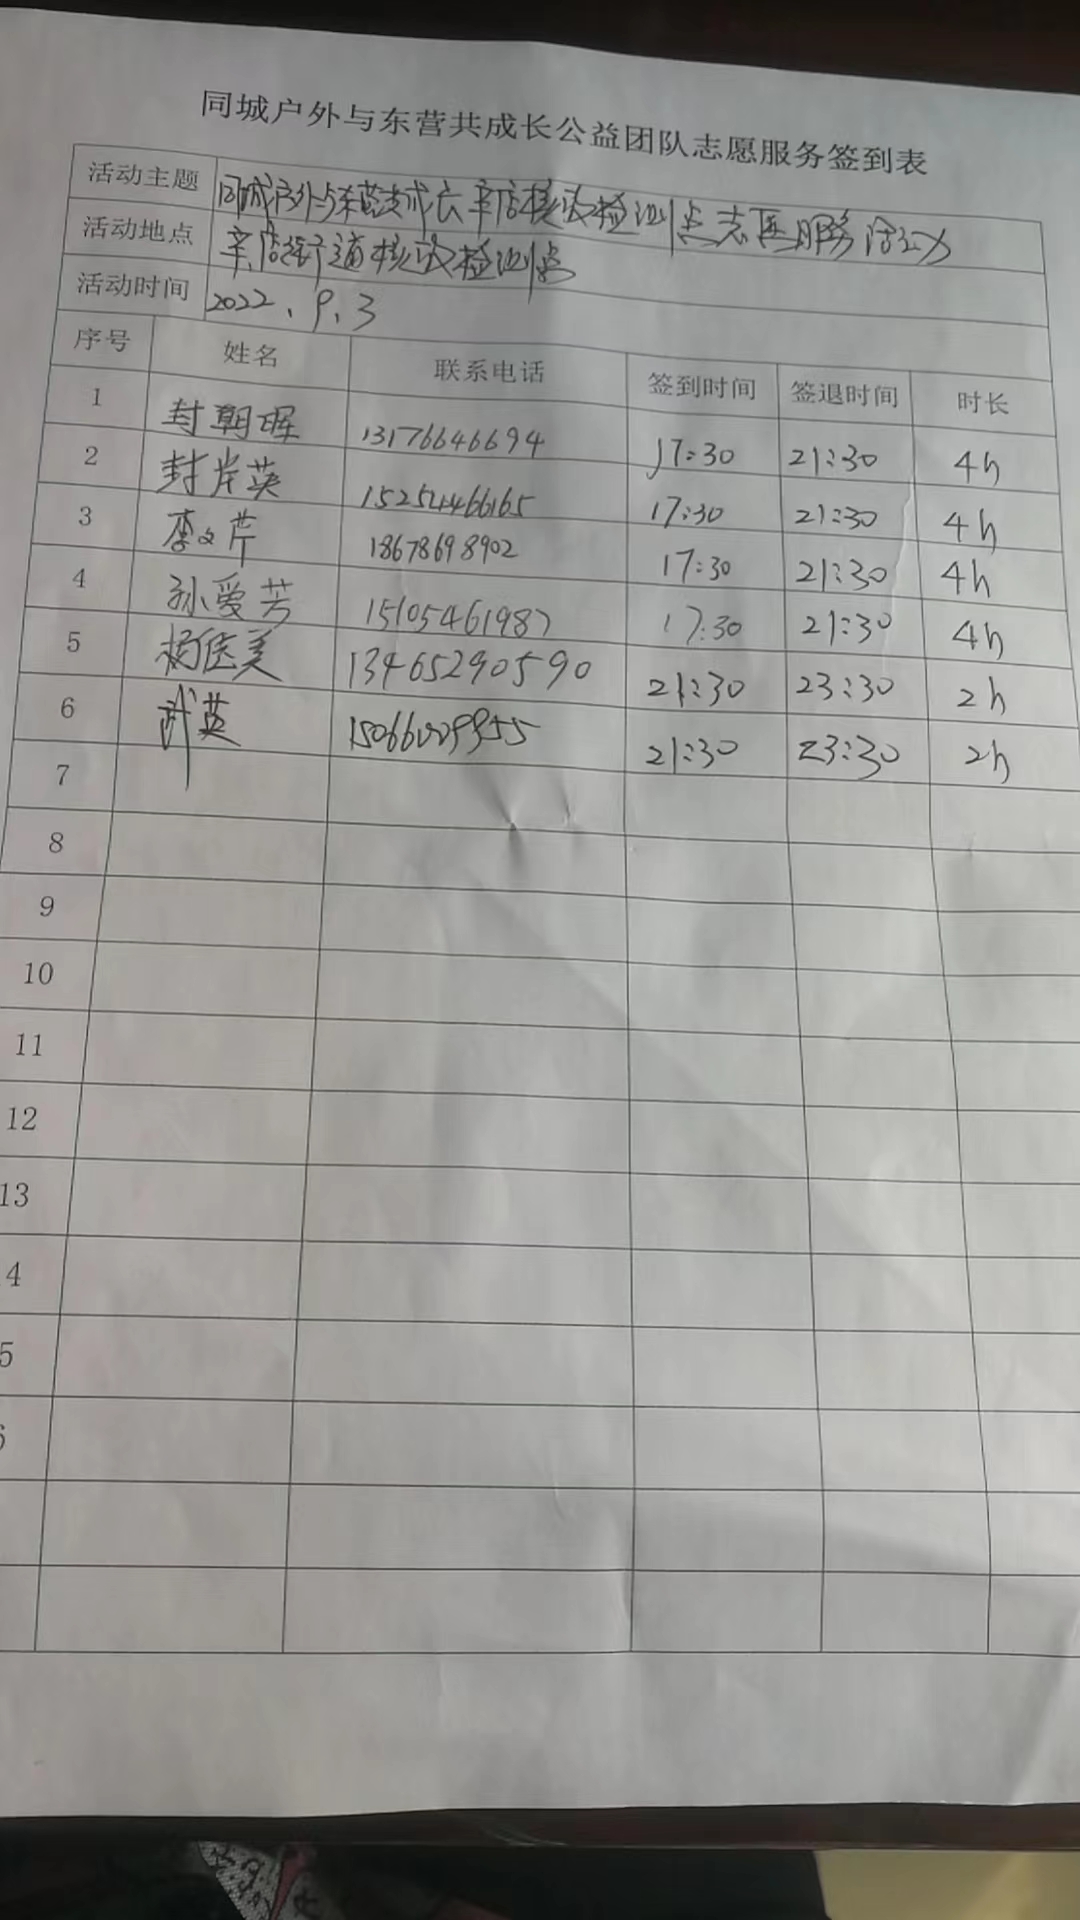 同城户外与东营共成长公益团队志愿服务签到表
活动主题 同城户外与东营共成长辛店核酸检测点志愿服务活动
活动地点 辛店街道核酸检测点
活动时间 2022.9.3
序号 姓名 联系电话 签到时间 签退时间 时长
1 封朝晖 13176646694 17:30 21:30 4h
2 封岸英 15254466165 17:30 21:30 4h
3 李文芹 18678698902 17:30 21:30 4h
4 孙爱芳 15105461987 17:30 21:30 4h
5 杨佳美 13465290590 21:30 23:30 2h
6 武英 21:30 23:30 2h
7
8
9
10
11
12
13
4
5